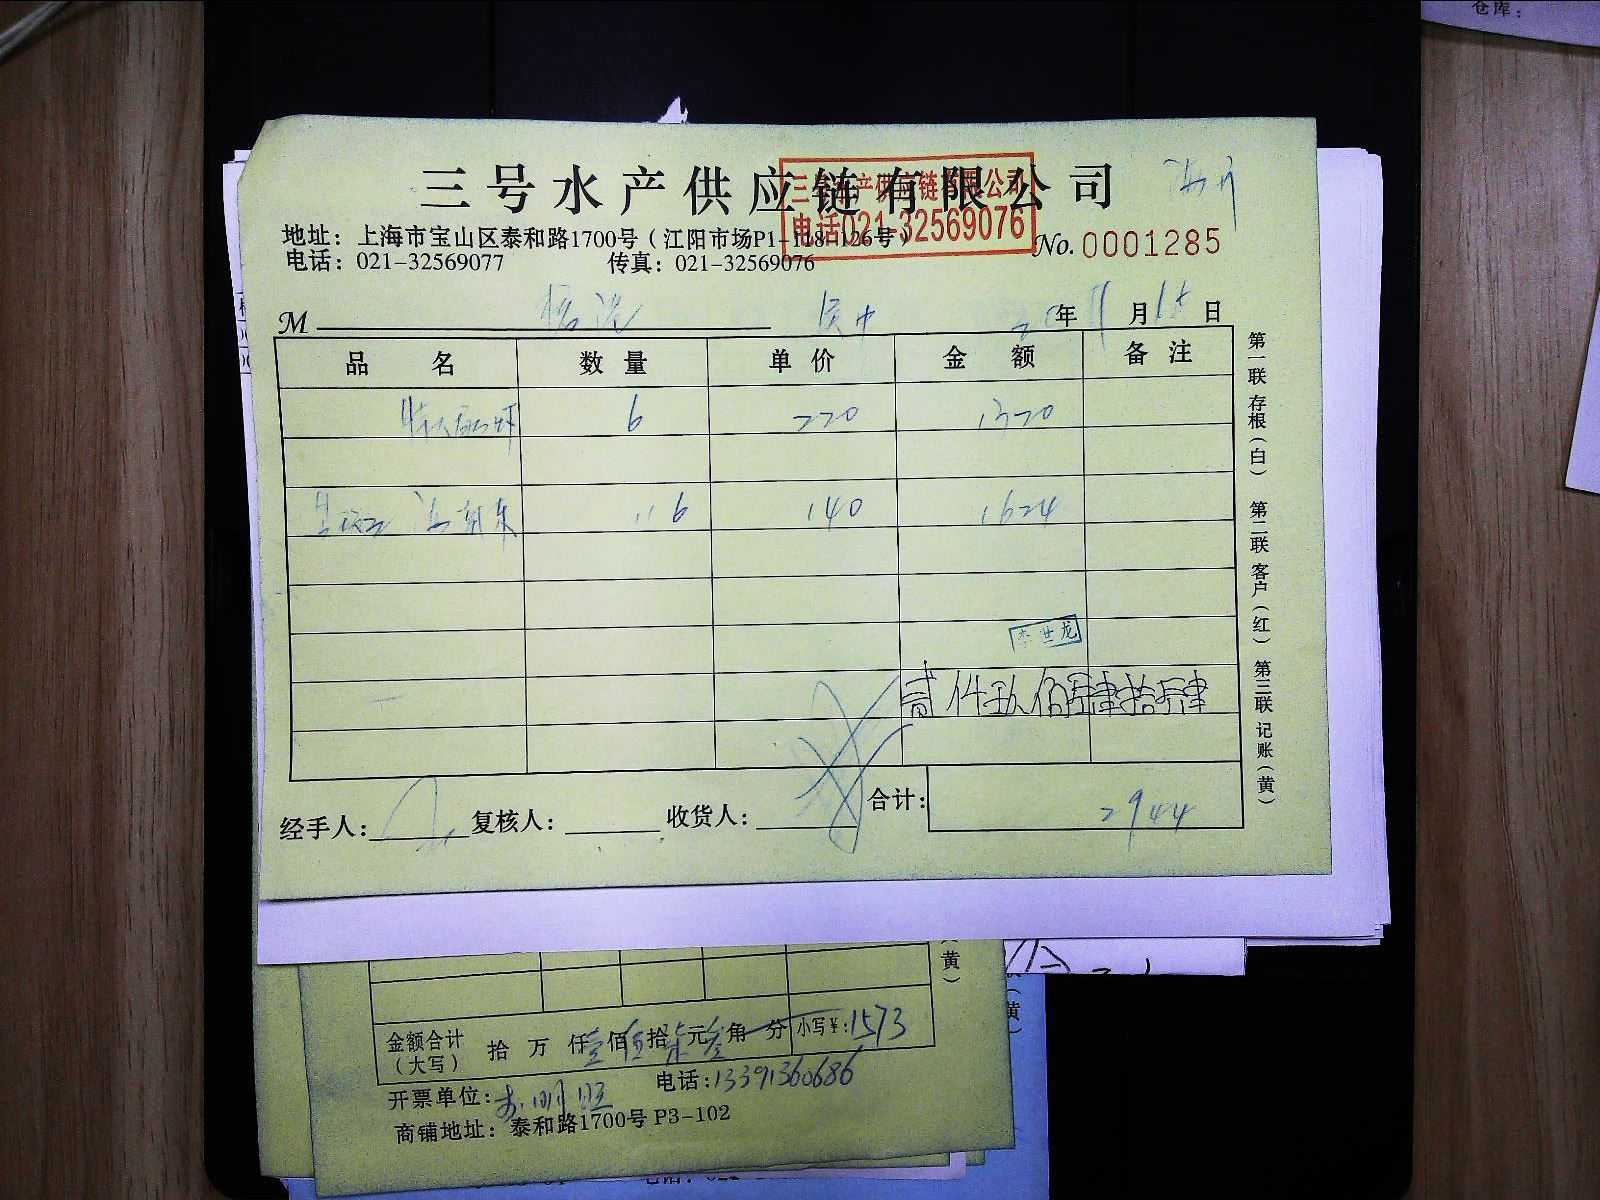 仓库：
三号水产供应链有限公司
三号水产供应链有限公司
电话021-32569076
地址：上海市宝山区泰和路1700号（江阳市场P1-118-126号）
No.0001285
电话：021-32569077 传真：021-32569076
M 年11月18日
品名 数量 单价 金额 备注
6 220 1320
11.6 140 1624
李世龙
贰仟玖佰肆拾肆
经手人： 复核人： 收货人： 合计： 2944
第一联 存根（白） 第二联 客户（红） 第三联 记账（黄）
黄）
金额合计（大写） 拾 万 仟壹佰伍拾柒元叁角 分 小写¥：1573
开票单位： 电话：13391360686
商铺地址：泰和路1700号 P3-102